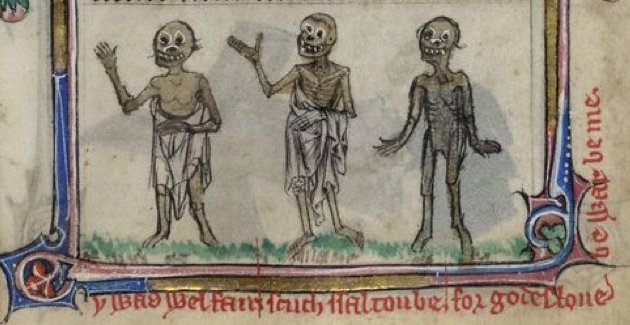 y was wel fair scuch ssal tou be for godes loue
be war be me.